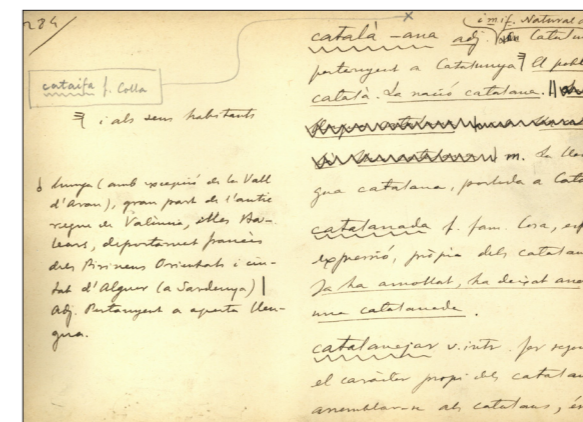 284
cataifa f. Colla
i als seus habitants
lunya (amb excepció de la Vall
d'Aran), gran part de l'antic
regne de València, Illes Ba-
lears, departament francès
dels Pirineus Orientals i ciu-
tat d'Alguer (a Sardenya) |
Adj. Pertanyent a aquesta llen-
gua.
i m. i f. Natural
català -ana adj.
pertanyent a Catalunya El pobl
català. La nació catalana. ||
m. La llen
gua catalana, parlada a Cata
catalanada f. fam. Cosa,
expressió, pròpia dels catalan
Ja ha amollat, ha deixat ana
una catalanada.
catalanejar v. intr. fer
el caràcter propi dels catalan
assemblar-se als catalans,